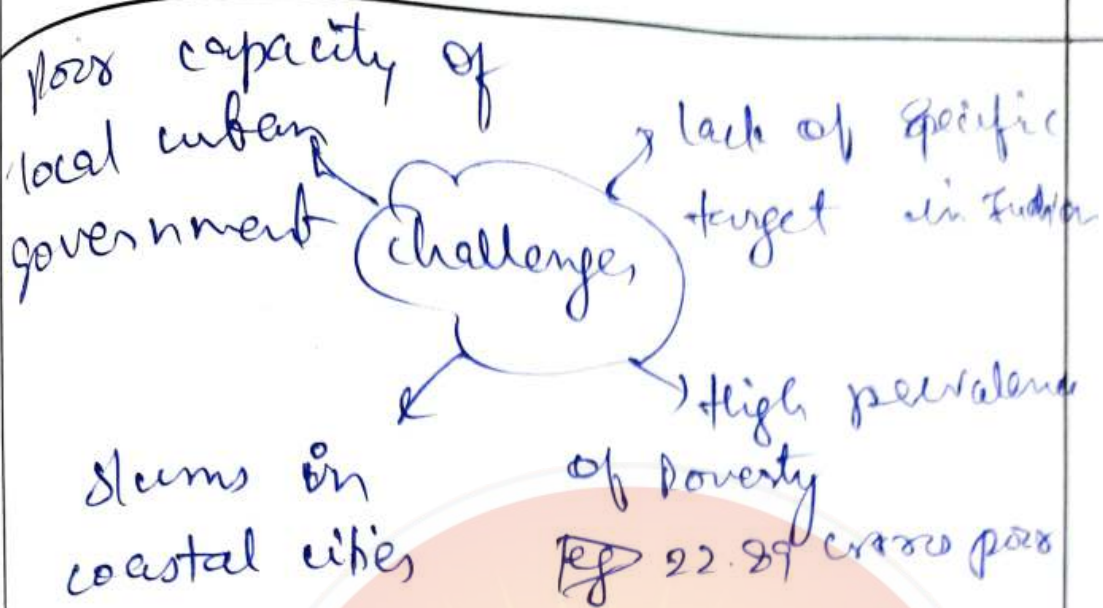 Poor capacity of
local urban
government
lack of specific
target in India
Challenges
slums in
coastal cities
High prevalence
of Poverty
eg 22.89 crore poor